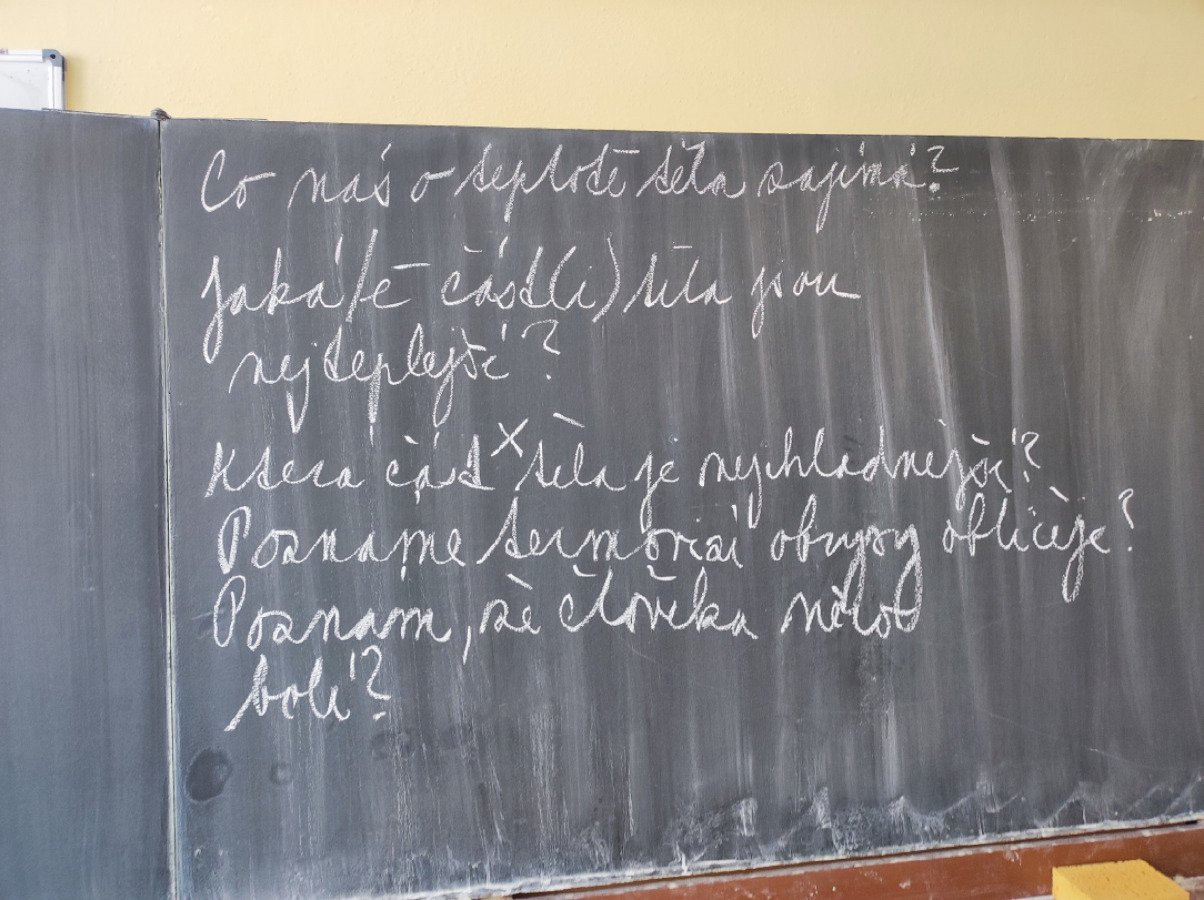 Co nás o teplotě těla zajímá?
Jaká/é část(i) těla jsou
nejteplejší?
Která část těla je nejchladnější?
Poznáme termovizí obrysy obličeje?
Poznám, že člověka něco
bolí?